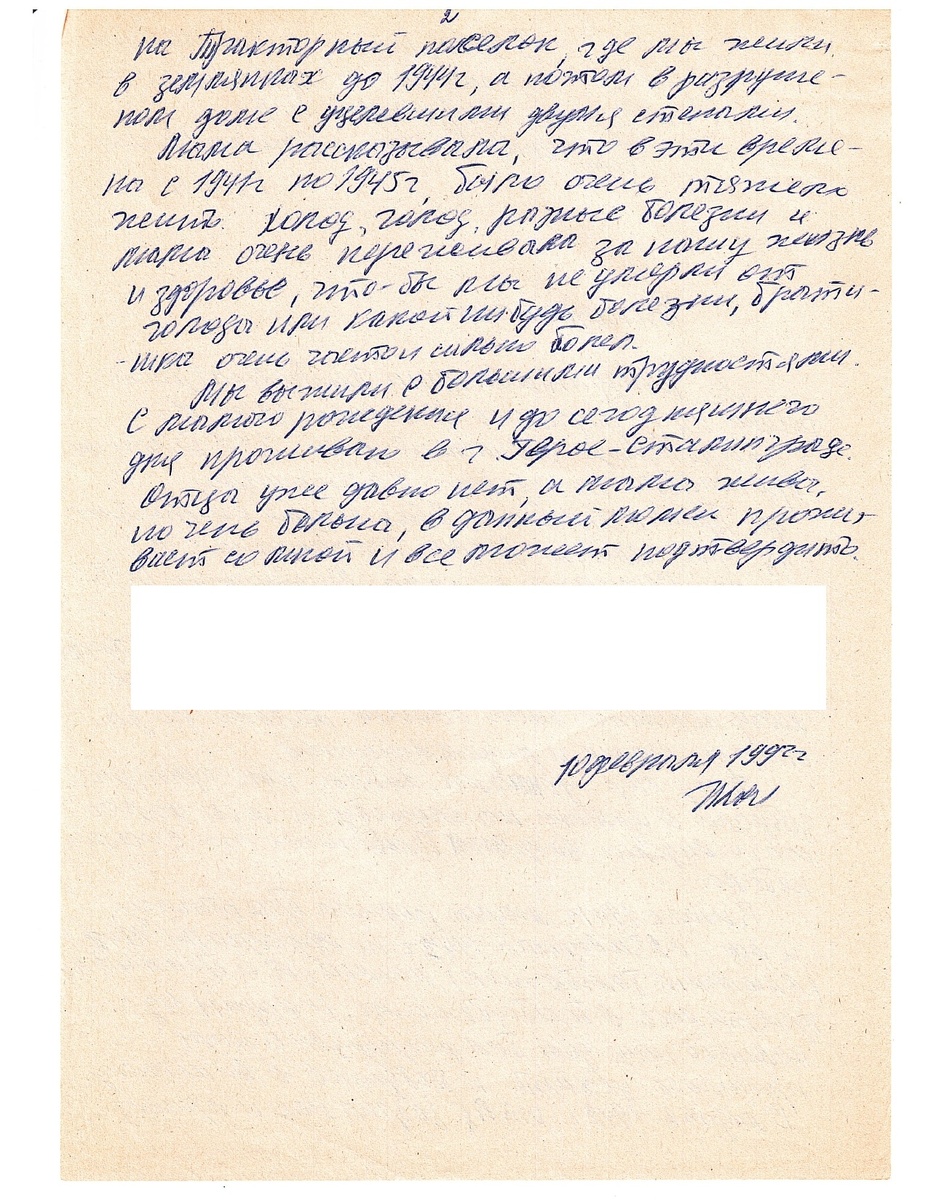 2
на Тракторный поселок, где мы жили
в землянках до 1944г, а потом в разруше-
ном доме с уцелевшими двумя стенами.
Мама рассказывала, что в эти време-
на с 1941г по 1945г, было очень тяжело
жить. Холод, голод, разные болезни и
мама очень переживала за нашу жизнь
и здоровье, что-бы мы не умерли от
голода или какой нибудь болезни, брати-
-шка очень часто и сильно болел.
Мы выжили с большими трудностями.
С самого рождения и до сегодняшнего
дня проживаю в г. Герое-Сталинграде.
Отца уже давно нет, а мама жива,
но чень больна, в данный момен прожи-
вает со мной и все может подтвердить.
10 февраля 199 г